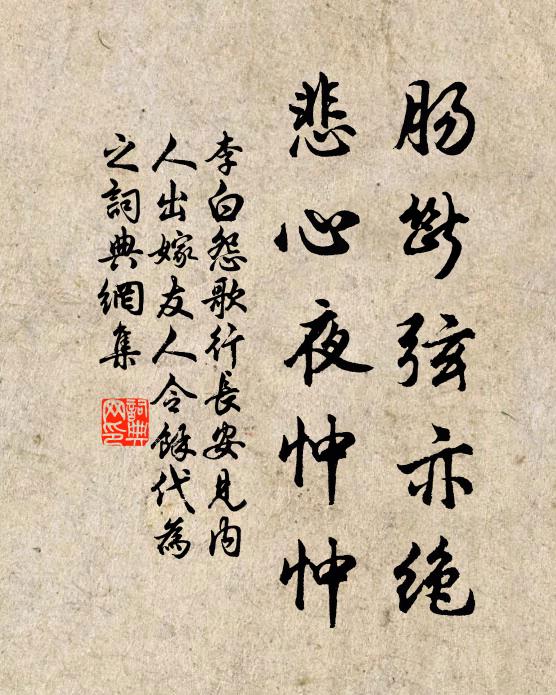 肠断弦亦绝
悲心夜忡忡
李白怨歌行长安见内
人出嫁友人令馀代为
之詞典網集
詞典
网印